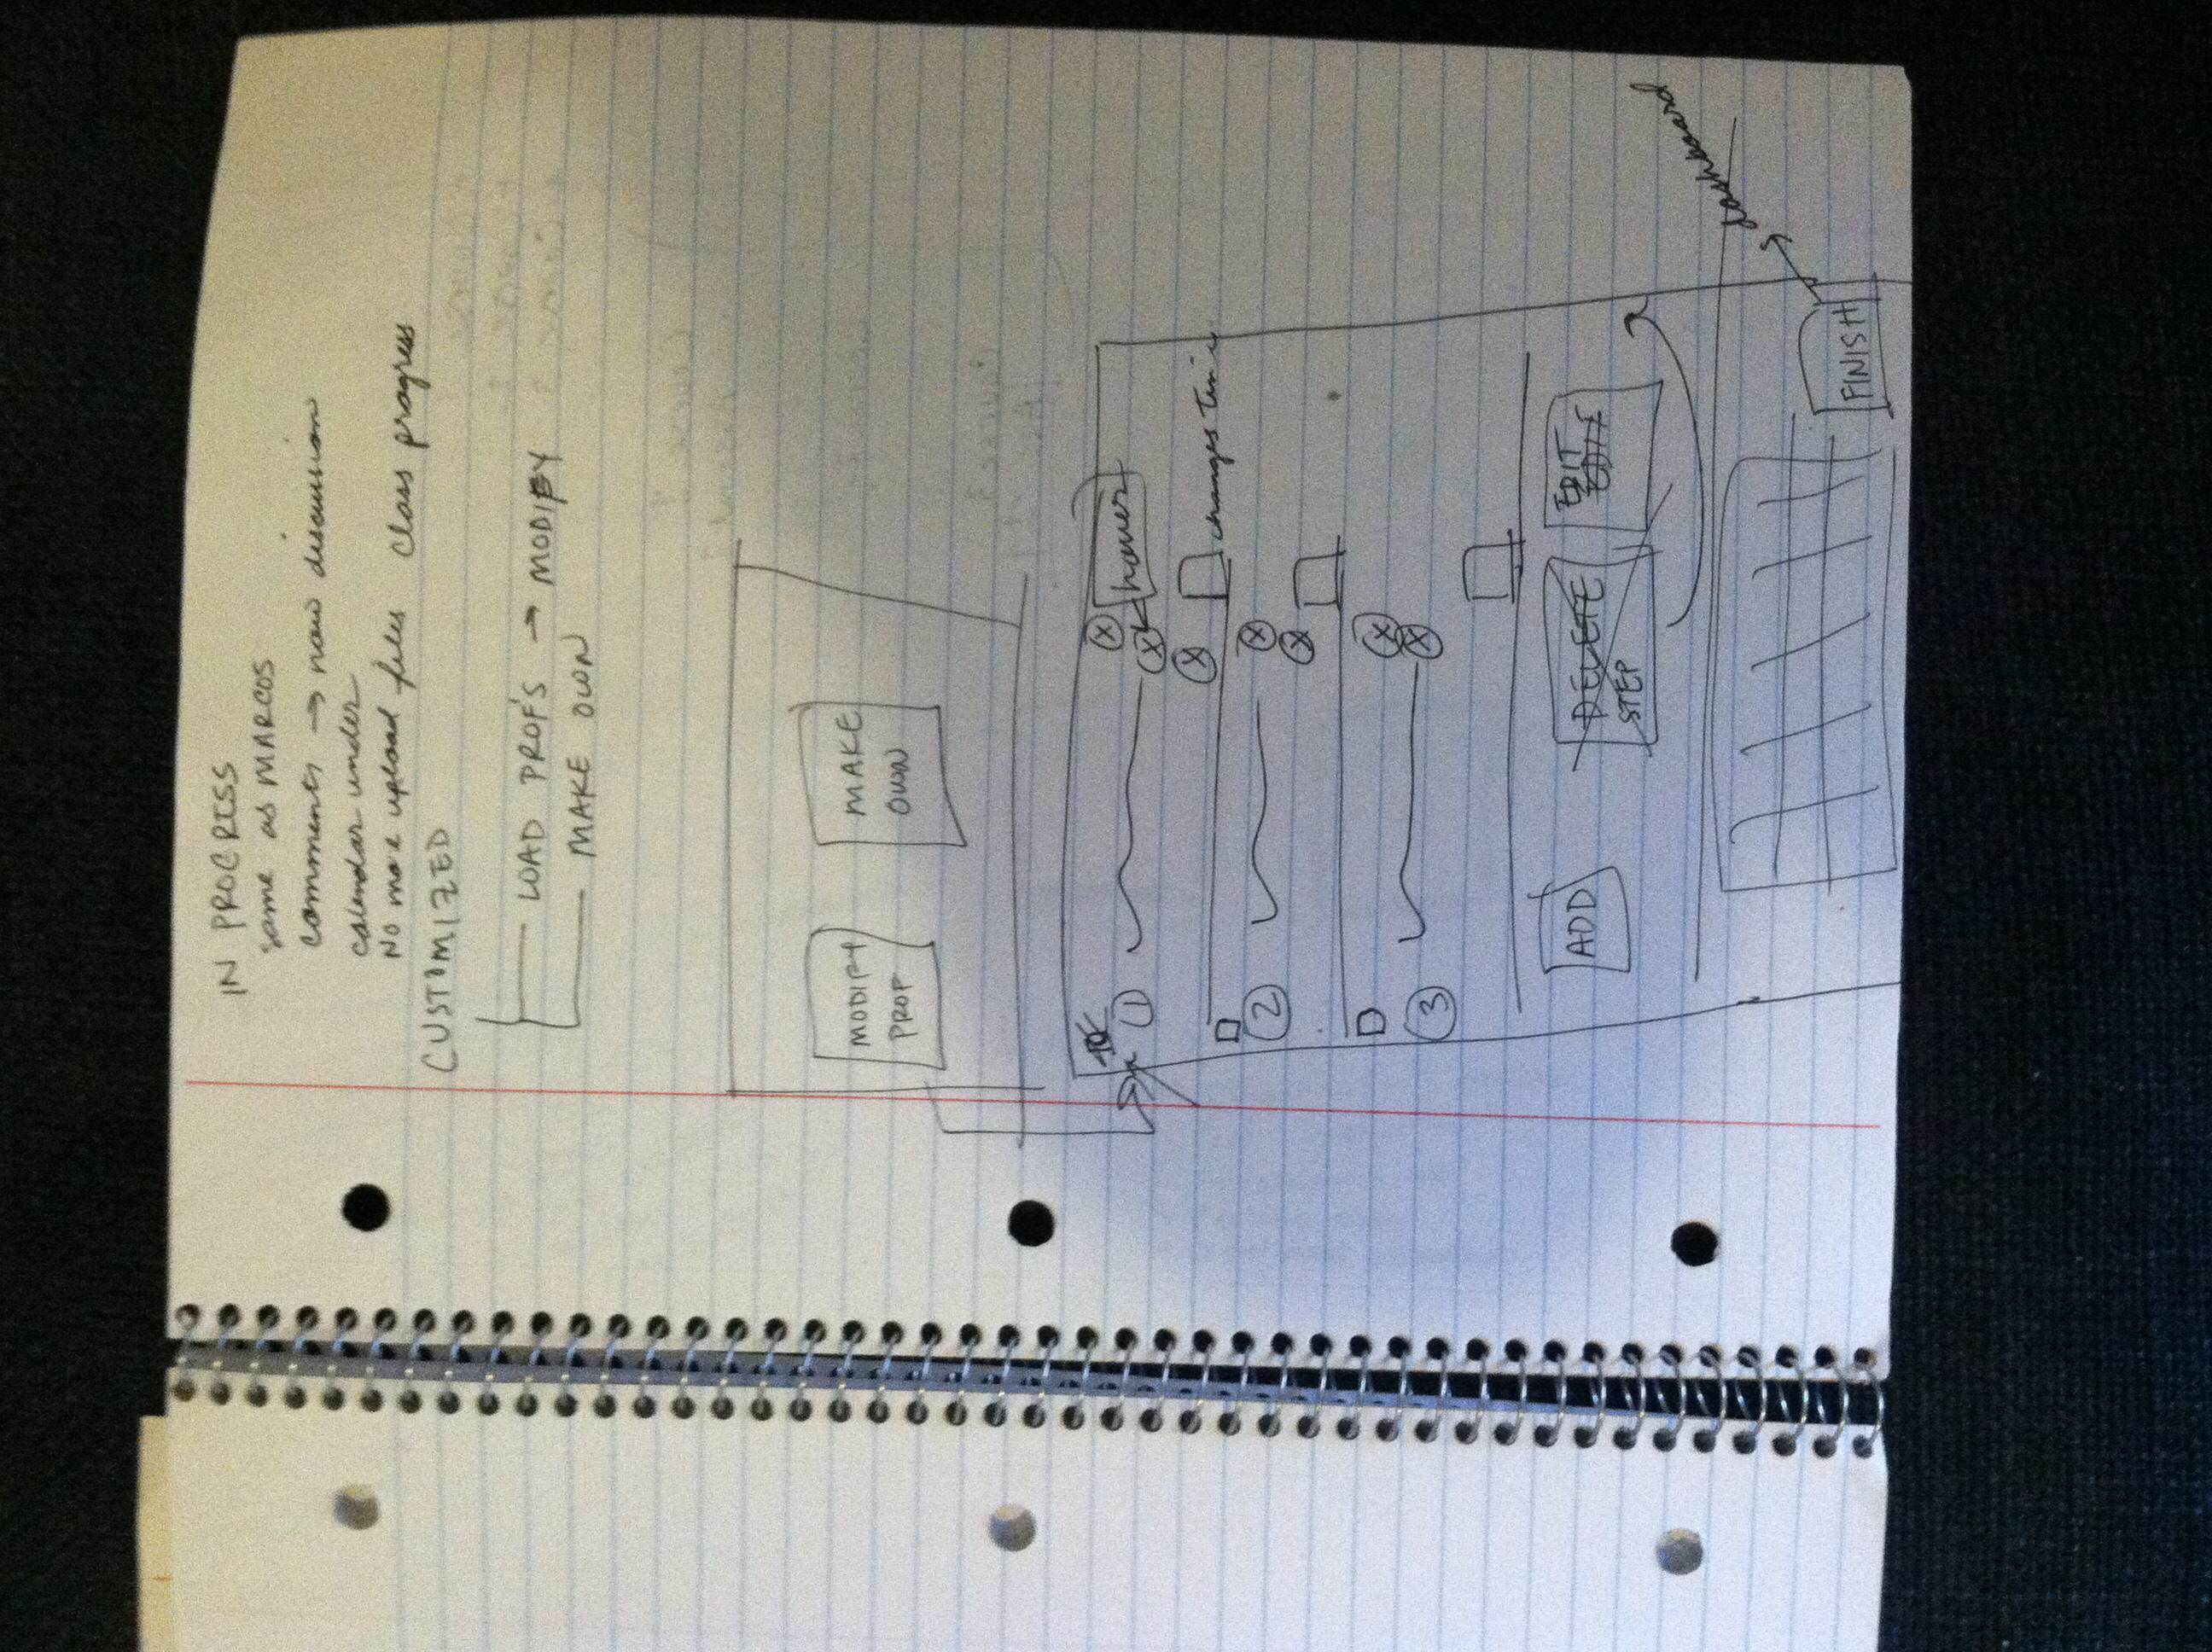 IN PROGRESS
same as MARCOS
comments → now discussion
calendar under
No more upload files class progress
CUSTOMIZED
LOAD PROF'S → MODIFY
MAKE OWN
MODIFY
PROF
MAKE
OWN
1
X
hover
X
X
changes
2
X
X
3
X
X
ADD
DELETE
STEP
EDIT
EDIT
dashboard
FINISH